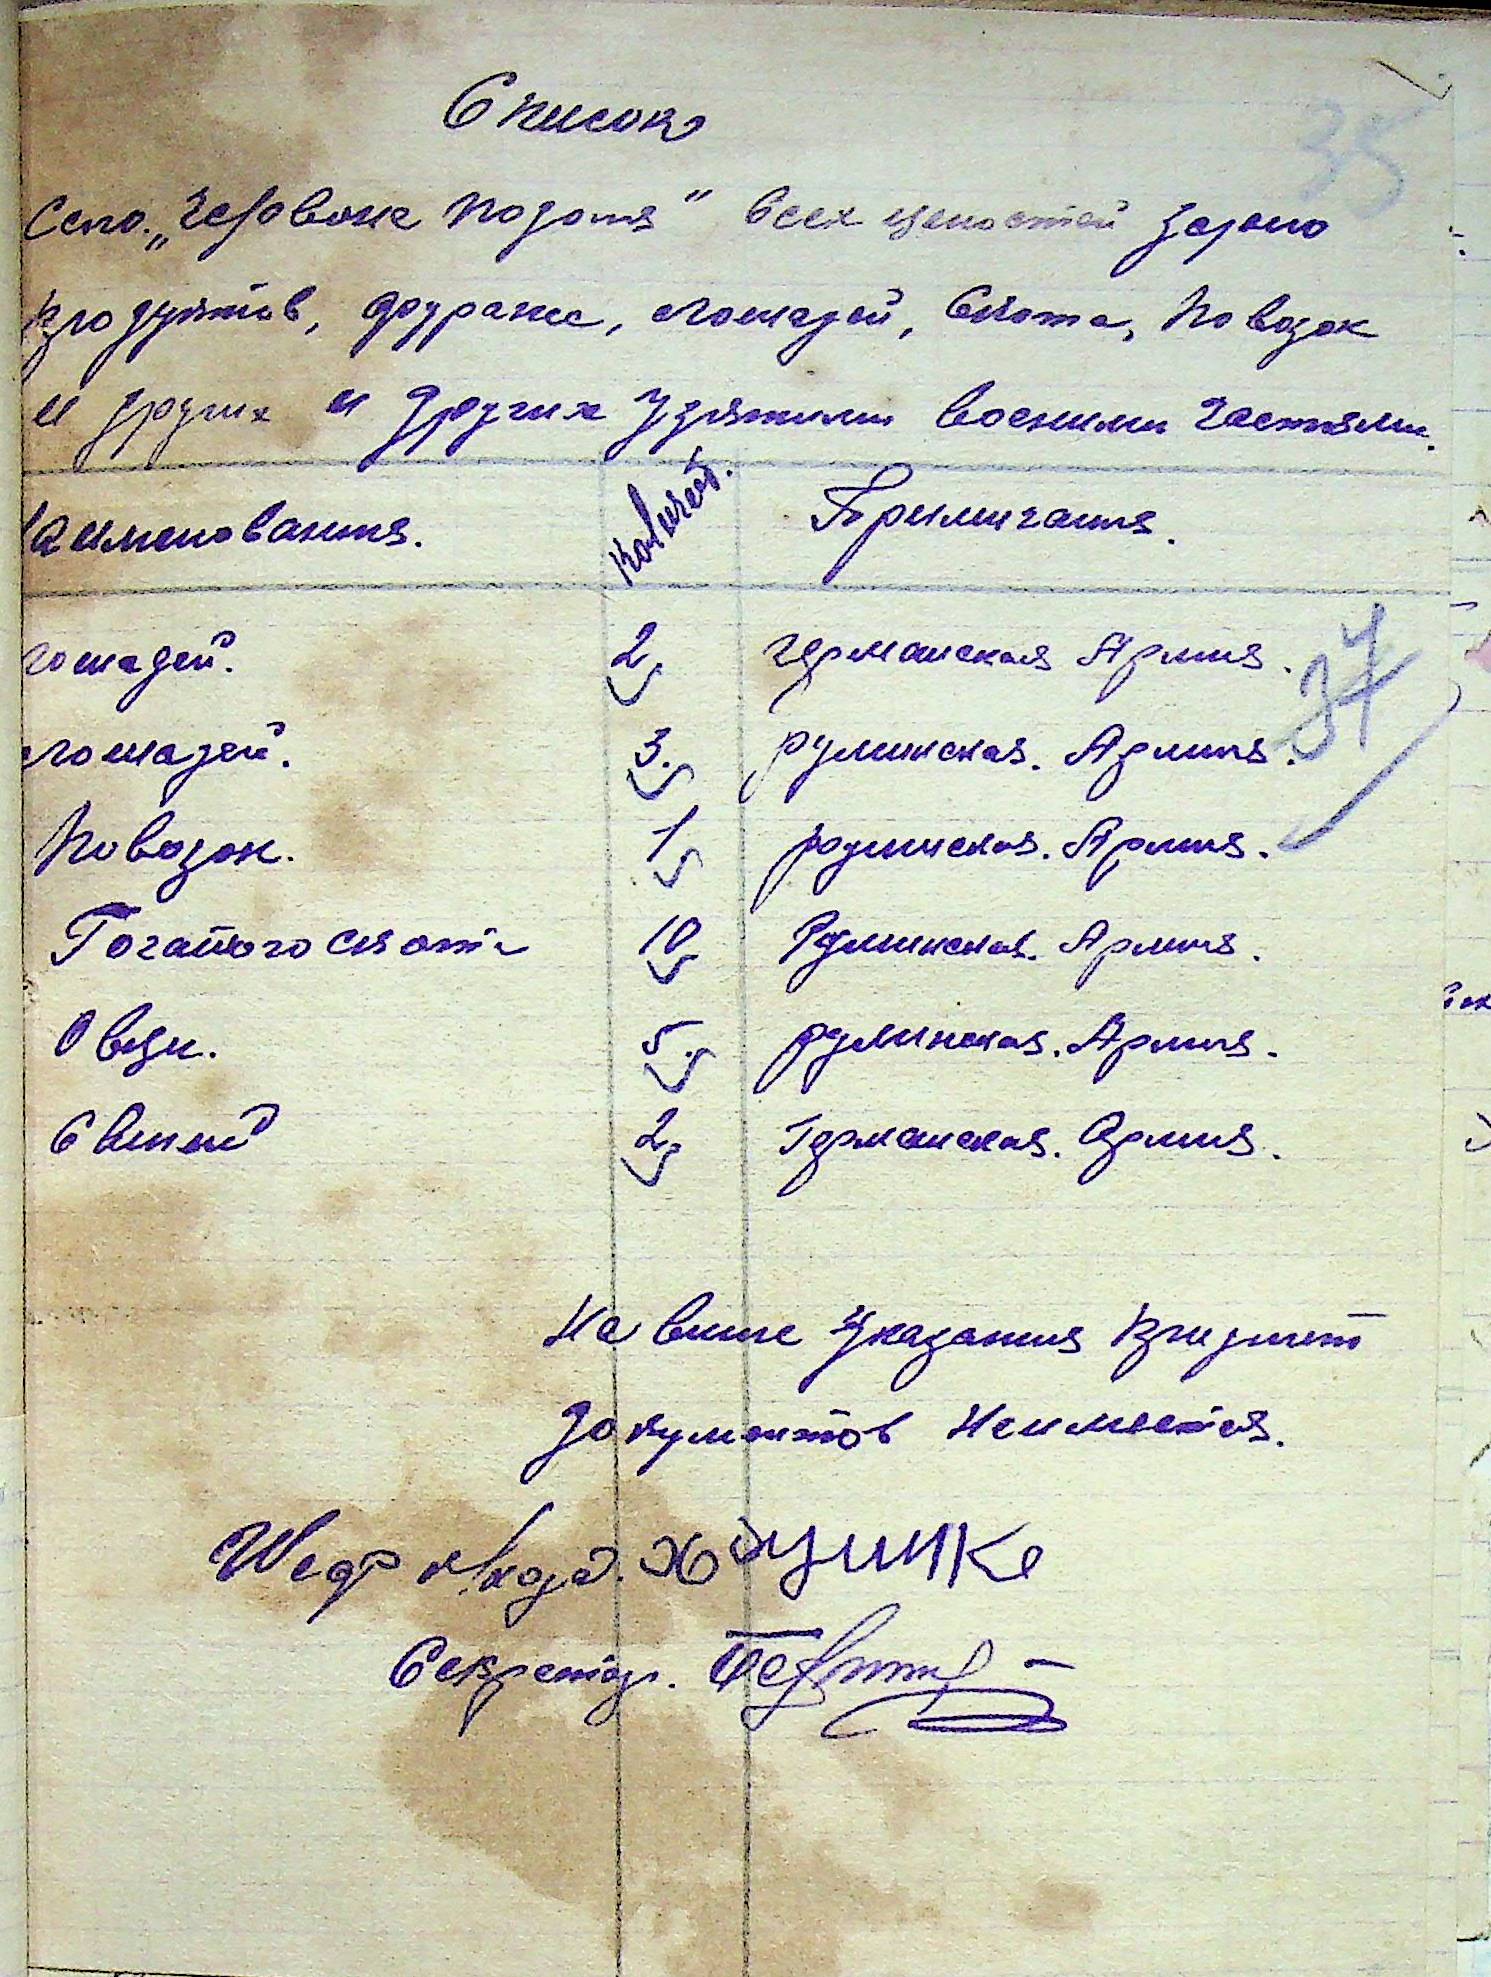 Список
35
Село. „Червоне Подоля" всех ценостей зерно
продуктов, фураже, лошадей, Скота, Повозок
и других и других узятими военими частями.
Наименования. Количест. Примичания.
лошадей. 2. германская Армия.
37
лошадей. 3. руминская. Армия.
Повозок. 1 руминская. Армия.
Рогатого скота 10 Руминская. Армия.
Овци. 5. руминская. Армия.
Свиней 2. Германская. Армия.
На више Указания предмет
документов Неимеется.
Шеф
Секретарь.